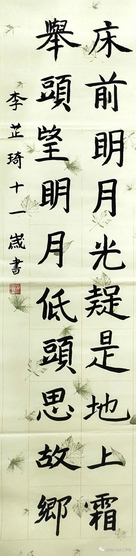 床前明月光疑是地上霜
舉頭望明月低頭思故鄉
李芷琦十一歲書